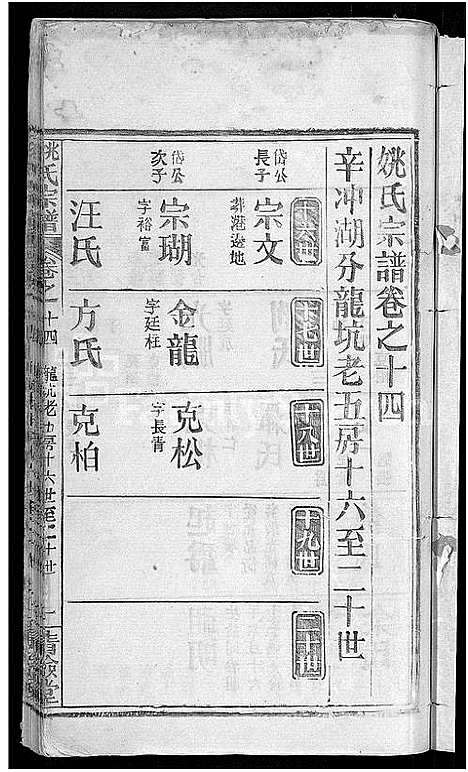 姚氏宗譜卷之十四
辛冲湖分龍坑老五房十六至二十世
十六世
岱公長子
宗文
葬港邊地
岱公次子
宗瑚
字裕富
汪氏
十七世
金龍
字廷柱
方氏
十八世
克松
字長青
克柏
十九世
二十世
姚氏宗譜
卷之十四
龍坑老五房十六世至二十世
一